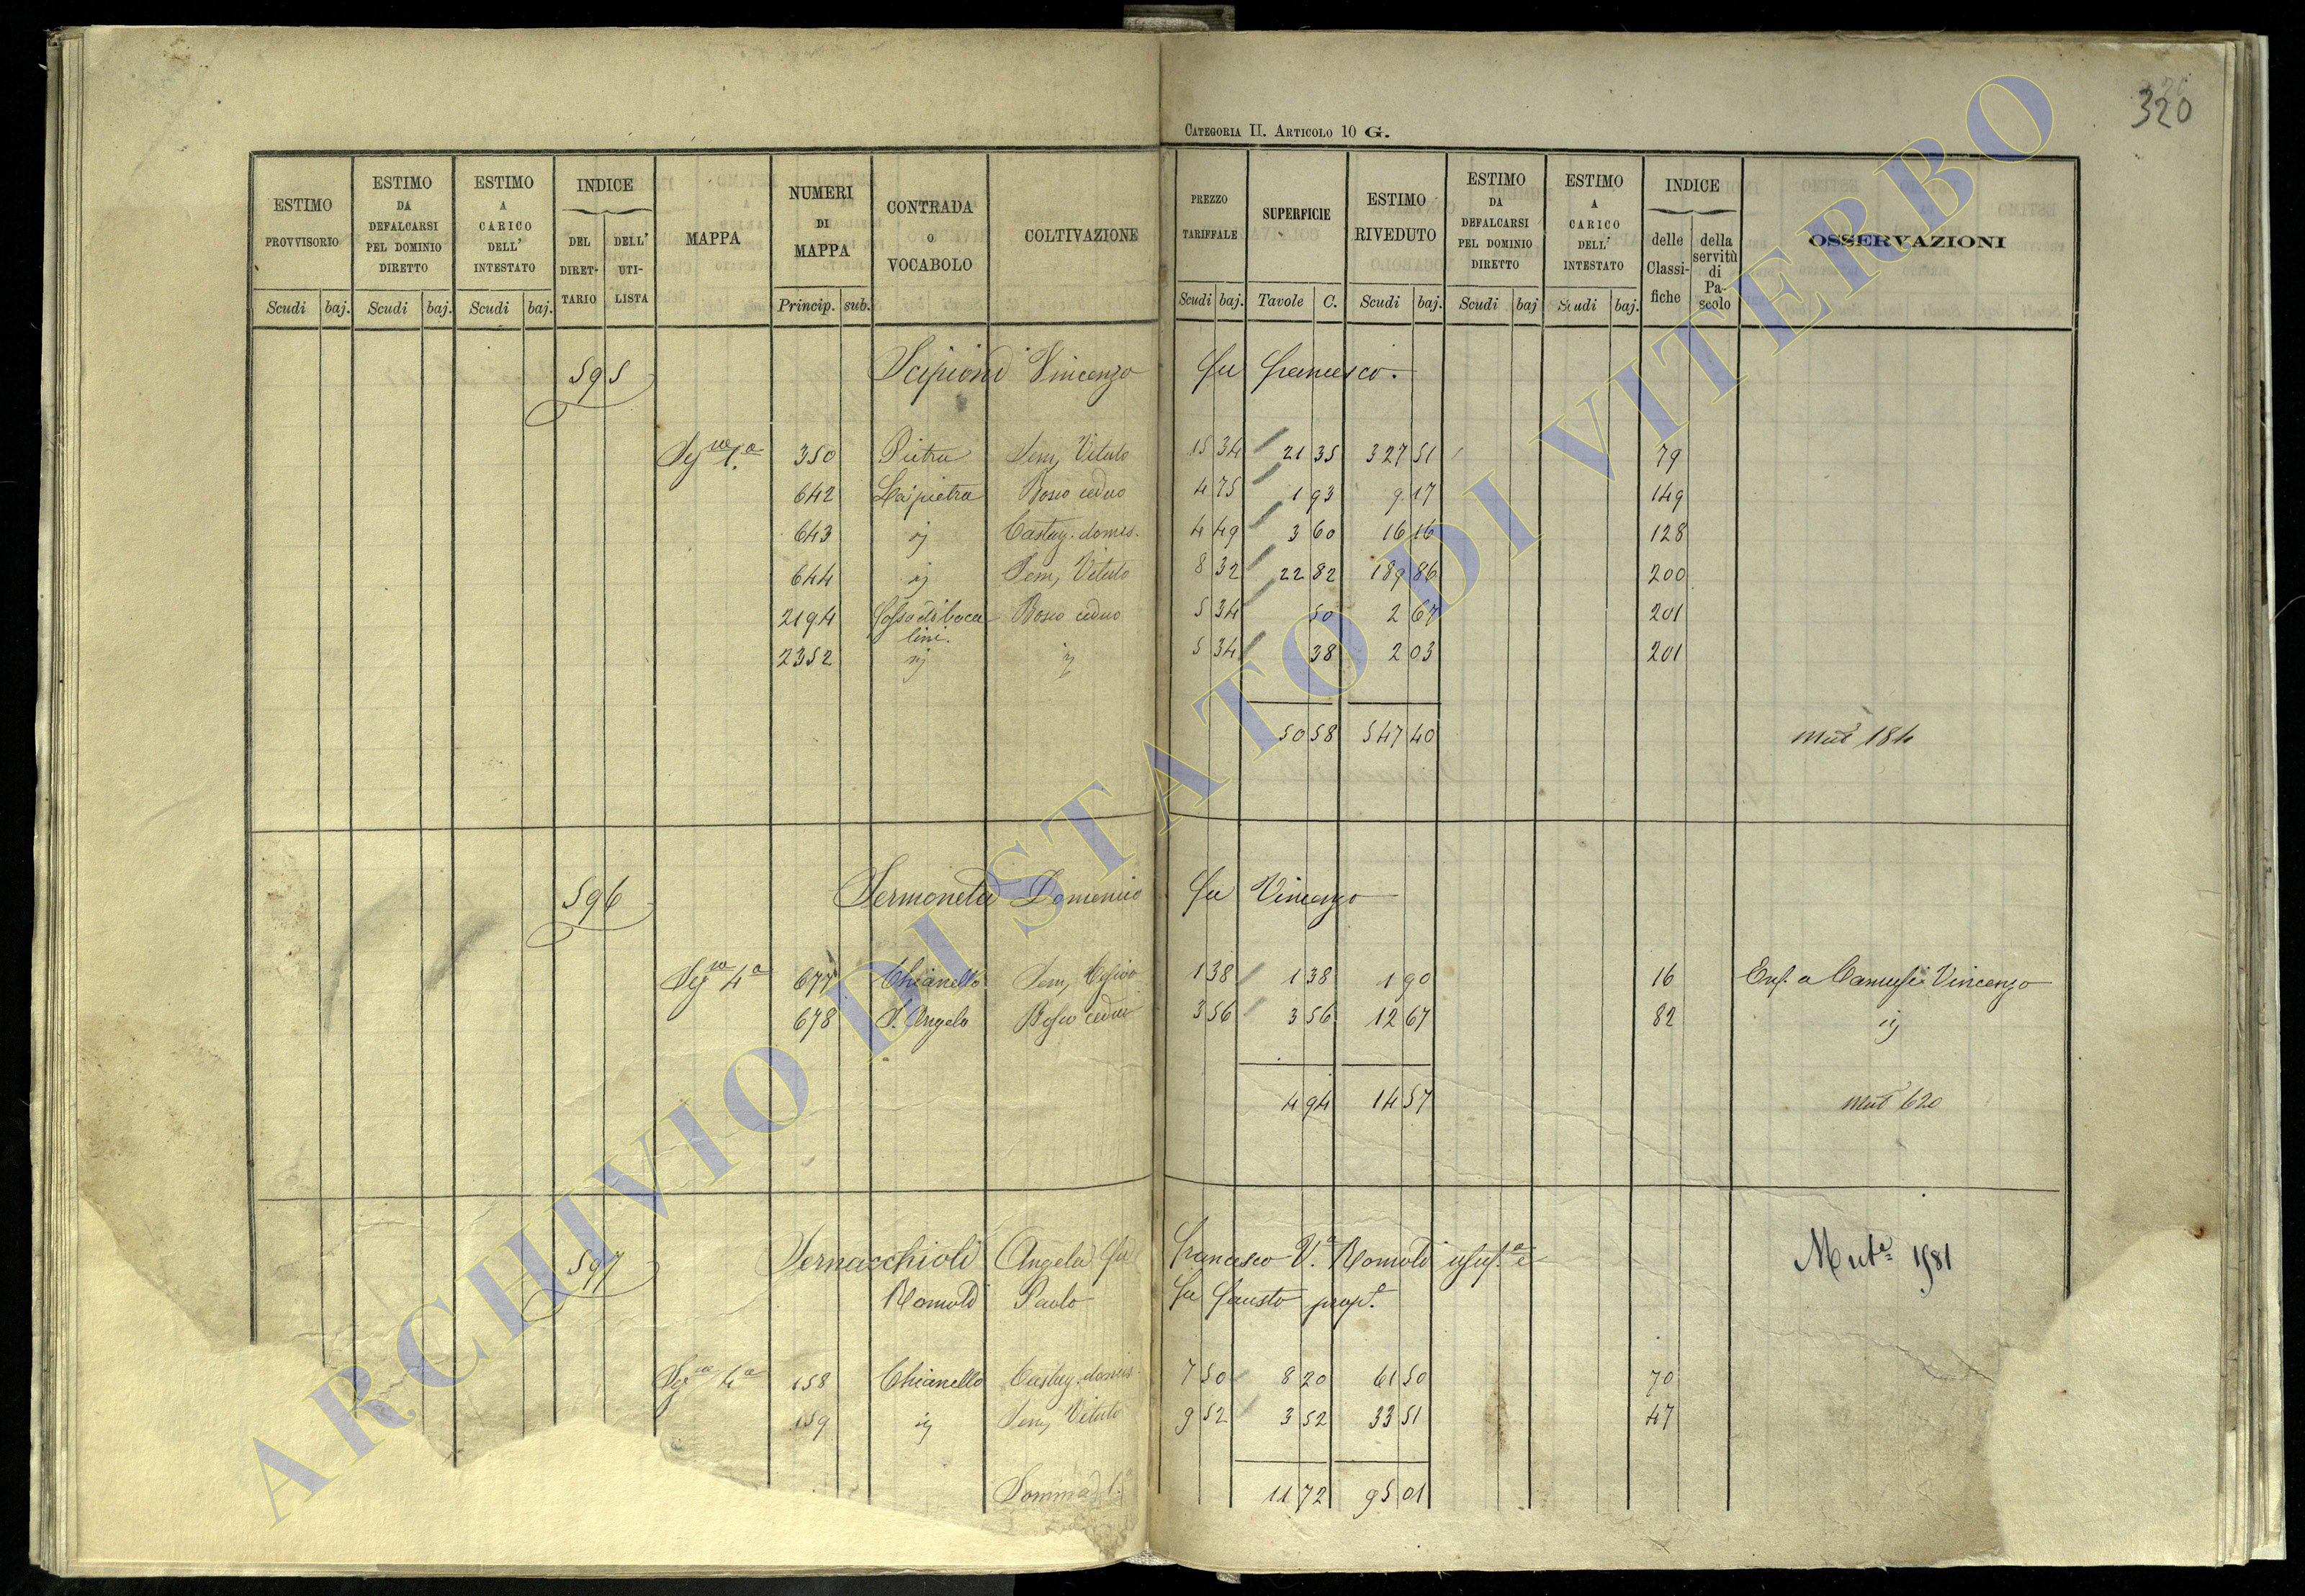 320
CATEGORIA II. ARTICOLO 10 G.
ESTIMO PROVVISORIO
ESTIMO DA DEFALCARSI PEL DOMINIO DIRETTO
ESTIMO A CARICO DELL' INTESTATO
INDICE
DEL DIRETTARIO
DELL' UTILISTA
MAPPA
NUMERI DI MAPPA
CONTRADA O VOCABOLO
COLTIVAZIONE
PREZZO TARIFFALE
SUPERFICIE
ESTIMO RIVEDUTO
ESTIMO DA DEFALCARSI PEL DOMINIO DIRETTO
ESTIMO A CARICO DELL' INTESTATO
INDICE
delle Classifiche
della servitù di Pascolo
OSSERVAZIONI
Scudi baj. Scudi baj. Scudi baj. Princip. sub. Scudi baj. Tavole C. Scudi baj. Scudi baj Scudi baj.
595 Scipioni Vincenzo fu Francesco.
Seg.ne 1.a 350 Pietra Sem. Vitato 15 34 21 35 327 51 79
642 La pietra Bosco ceduo 4 75 1 93 9 17 149
643 ij Castag. domes. 4 49 3 60 16 16 128
644 ij Sem. Vitato 8 32 22 82 189 86 200
2194 Bosco ceduo 5 34 50 2 67 201
2352 ij ij 5 34 38 2 03 201
50 58 547 40 mut 184
596 Sermoneta Domenico fu Vincenzo
Seg.ne 4a 677 Chianello Sem. 1 38 1 38 1 90 16 Enf. a Vincenzo
678 S. Angelo Bosco ceduo 3 56 3 56 12 67 82 ij
4 94 14 57 mut 620
597 Sernacchioli Angela fu Francesco Va. Romoli usufa. e
Romoli Paolo fu Fausto prop.
Mute 1581
Seg.ne 4a 158 Chianello Castag. domes. 7 50 8 20 61 50 70
159 ij Sem. Vitato 9 52 3 52 33 51 47
Somma 11 72 95 01
ARCHIVIO DI STATO DI VITERBO